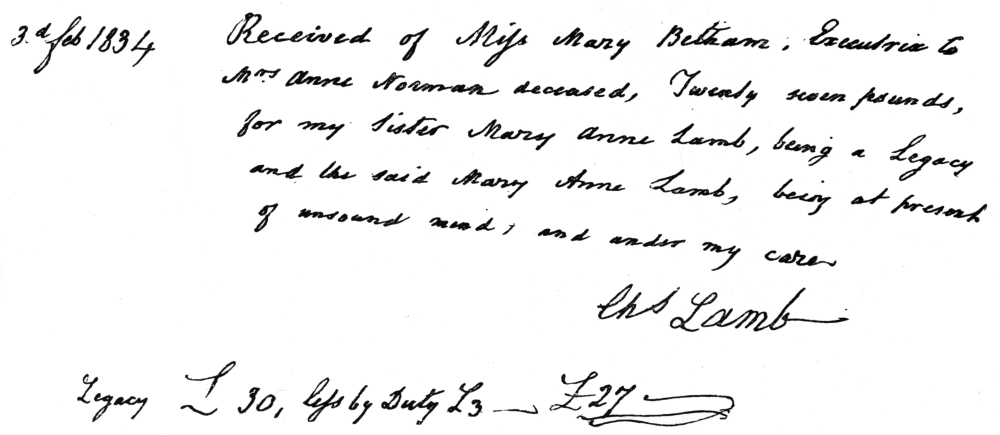 3.d feb 1834 Received of Miss Mary Betham, Executrix to
Mrs Anne Norman deceased, Twenty seven pounds,
for my Sister Mary Anne Lamb, being a Legacy
and the said Mary Anne Lamb, being at present
of unsound mind, and under my care
Chs Lamb
Legacy £ 30, less by Duty £3 — £27